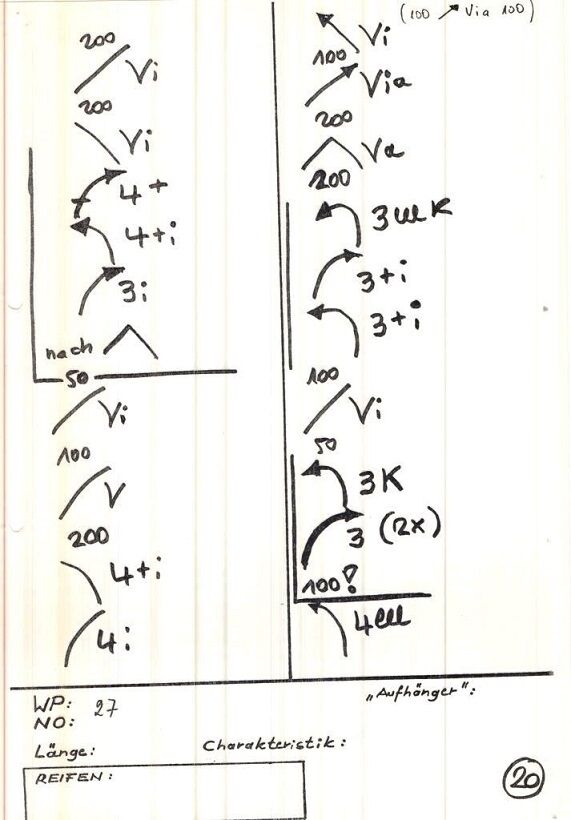 200
Vi
200
Vi
4+
4+i
3i
nach
50
Vi
100
V
200
4+i
4i
(100 ↗ Via 100)
Vi
100
Via
200
Va
200
3 lll K
3+i
3+i
100
Vi
50
3K
3 (2x)
100!
4lll
WP: 27
NO:
„Aufhänger":
Länge:
Charakteristik:
REIFEN:
20